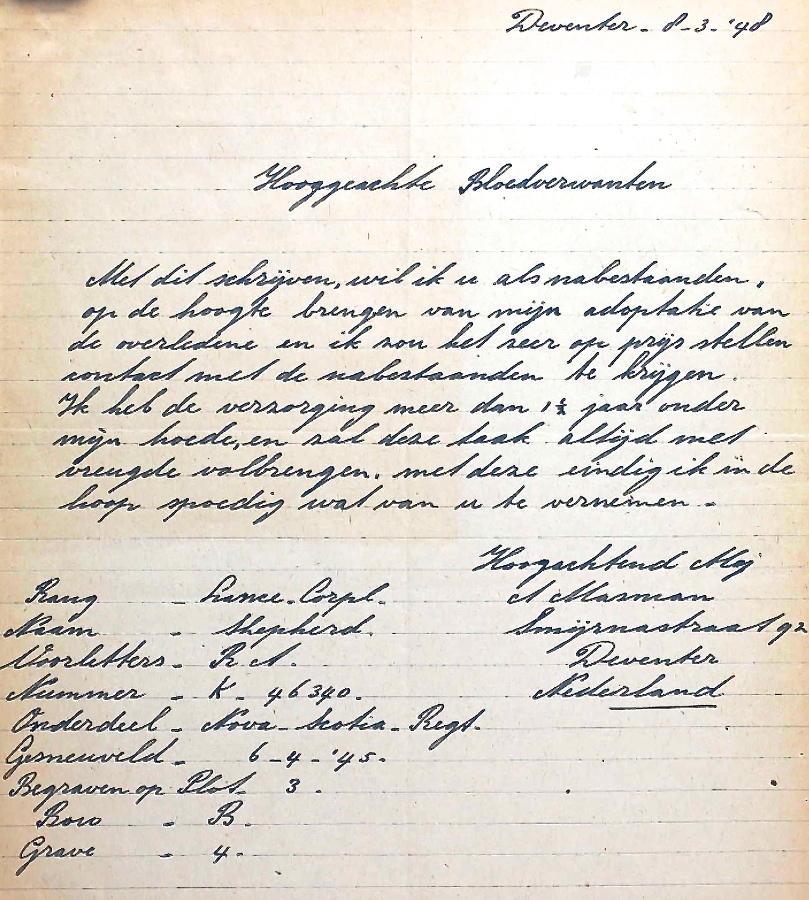 Deventer - 8-3-'48
Hooggeachte Bloedverwanten
Met dit schrijven, wil ik u als nabestaanden,
op de hoogte brengen van mijn adoptatie van
de overledene en ik zou het zeer op prijs stellen
contact met de nabestaanden te krijgen.
Ik heb de verzorging meer dan 1½ jaar onder
mijn hoede, en zal deze taak altijd met
vreugde volbrengen. met deze eindig ik in de
hoop spoedig wat van u te vernemen -
Hoogachtend Mej
A Masman
Smijrnastraat 92
Deventer
Nederland
Rang - Lance-Corpl.
Naam - Shepherd.
Voorletters - R.A.
Nummer - K - 46340.
Onderdeel - Nova-Scotia-Regt.
Gesneuveld - 6-4-'45.
Begraven op Plot - 3.
Row - B.
Grave - 4.